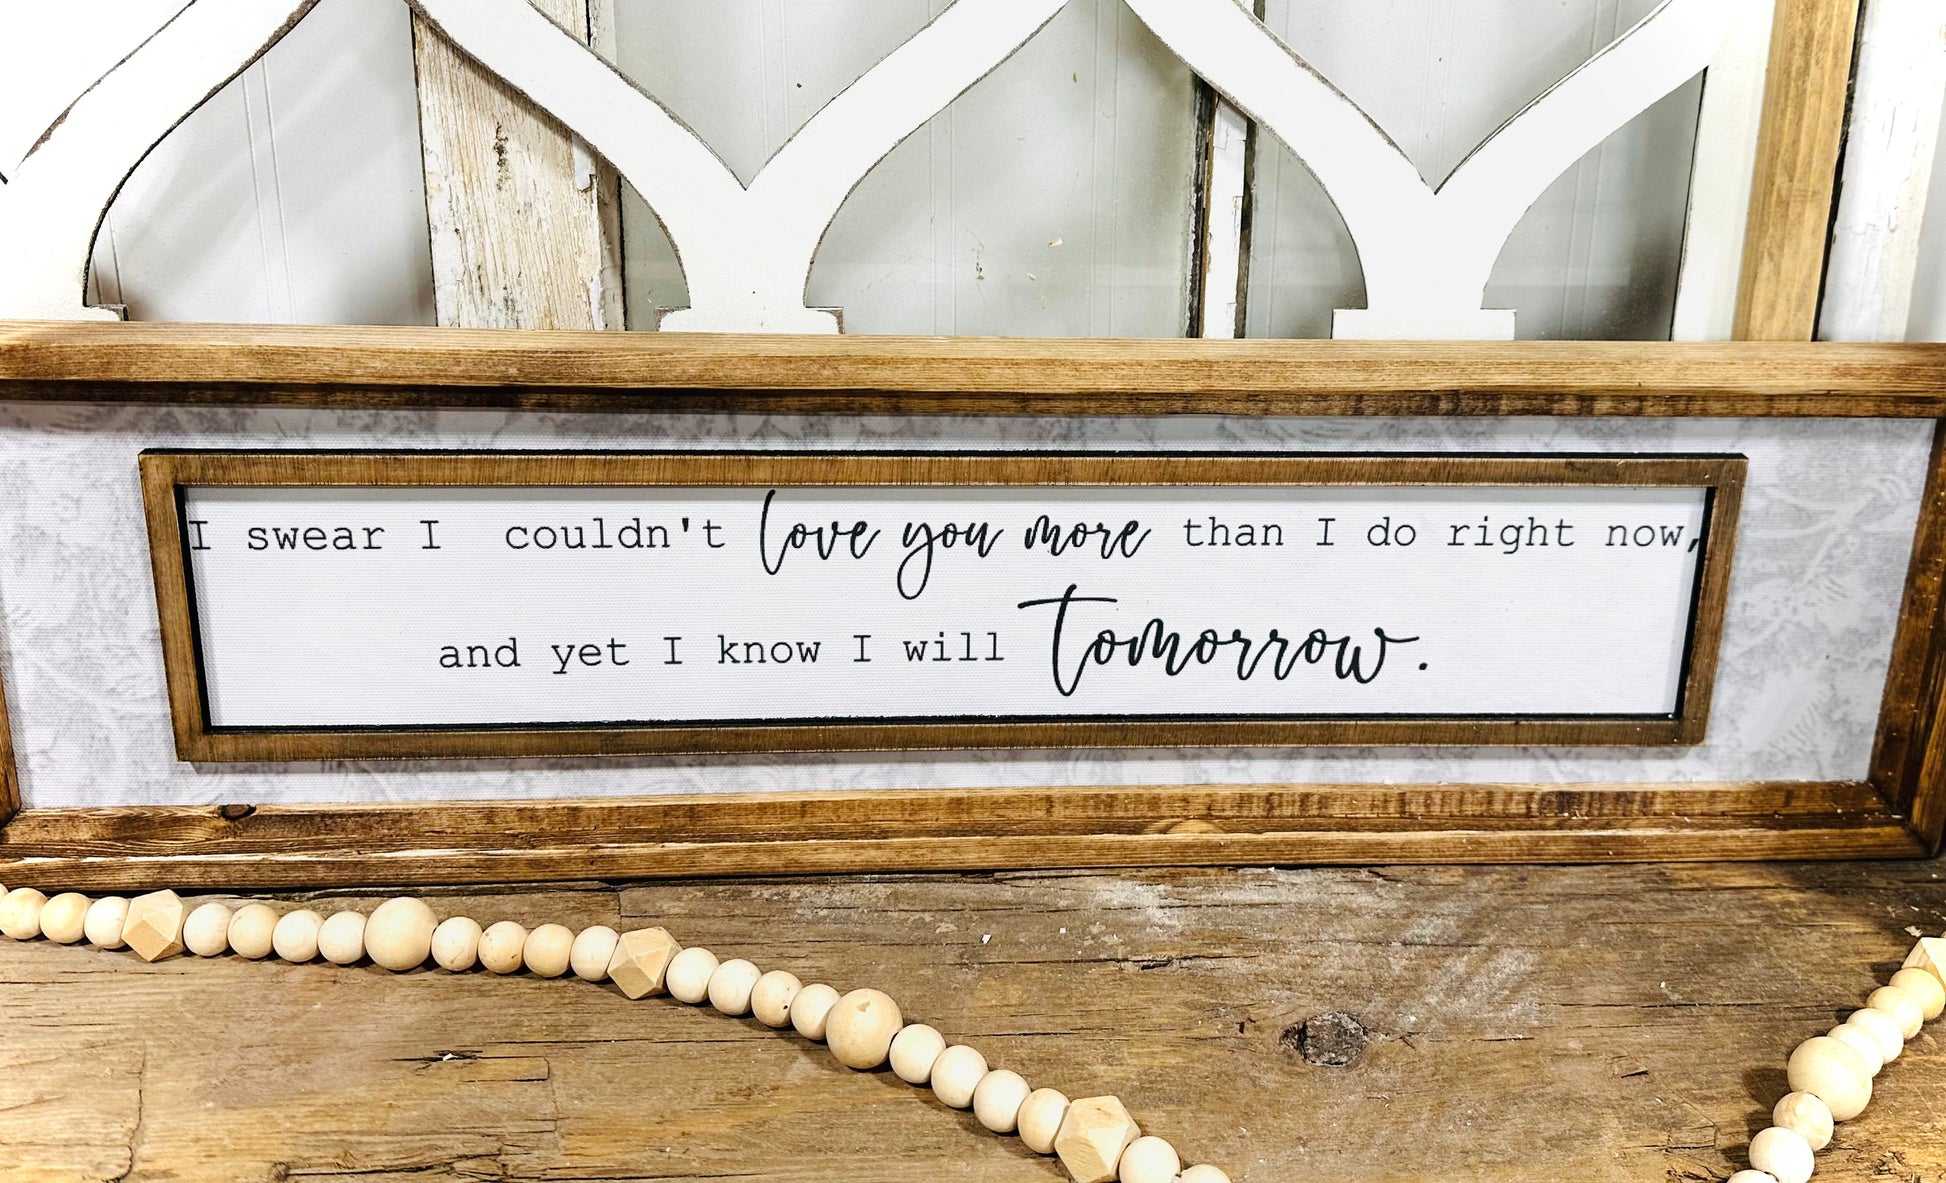 I swear I couldn't love you more than I do right now,
and yet I know I will tomorrow.